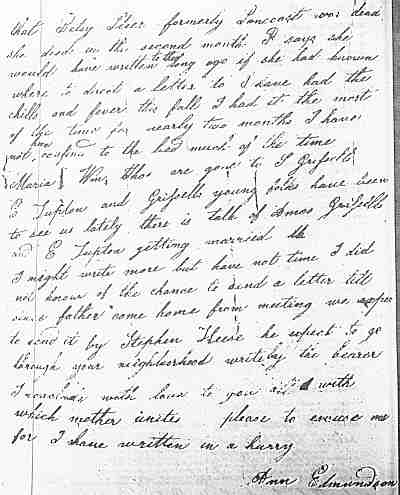 that Peley Steer formerly Doncast was dead
she died in the second month P says she
would have written to thee long ago if she had known
where to direct a letter to I have had the
chills and fever this fall I had it the most
of the time for nearly two months I have
not been confind to the bed much of the time
Maria Wm Thos are gone to S Grisells
E Tupton and Grisells young folks have been
to see us lately there is talk of Amos Grisells
and E Tupton getting married
I might write more but have not time I did
not know of the chance to send a letter till
since father come home from meeting we expec
to send it by Stephen he expect to go
through your neighborhood write by the bearer
I conclude with love to you all with
which mother unites please to excuse me
for I have written in a hurry
Ann Edmundson